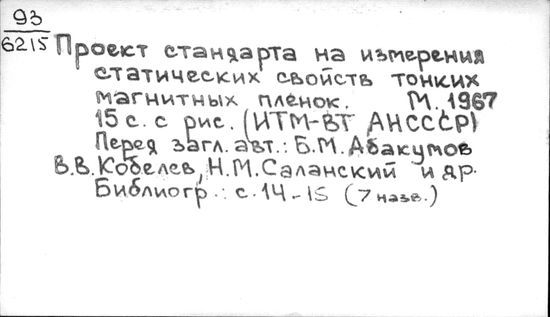 93
6215
Проект стандарта на измерения
статических свойств тонких
магнитных пленок. М. 1967
15 с. с рис. (ИТМ-ВТ АНСССР)
Перед загл. авт.: Б.М. Абакумов
В.В. Кобелев, Н.М. Саланский и др.
Библиогр.: с. 14-15 (7 назв.)